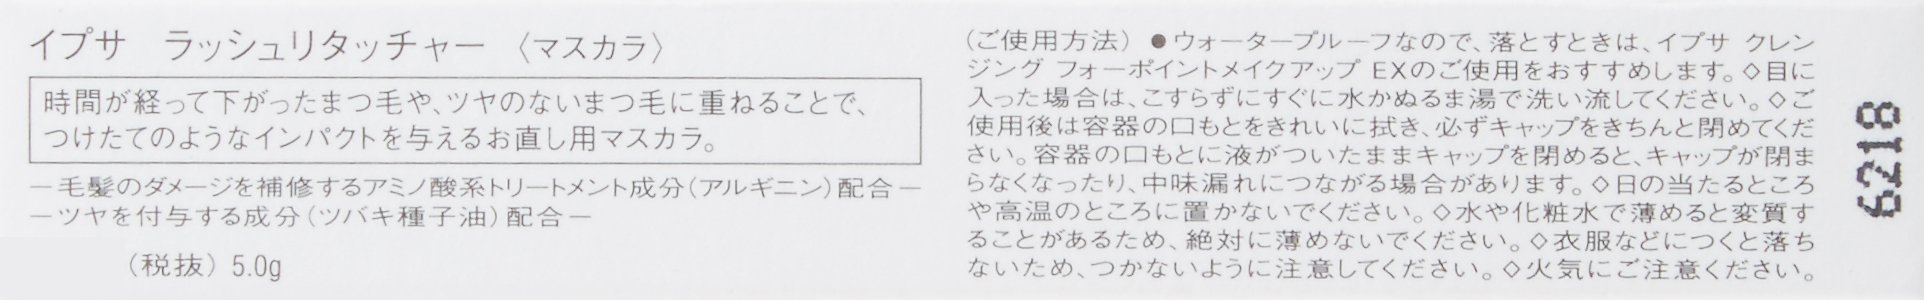 イプサ　ラッシュリタッチャー　〈マスカラ〉
時間が経って下がったまつ毛や、ツヤのないまつ毛に重ねることで、
つけたてのようなインパクトを与えるお直し用マスカラ。
－毛髪のダメージを補修するアミノ酸系トリートメント成分（アルギニン）配合－
－ツヤを付与する成分（ツバキ種子油）配合－
（税抜）5.0g
（ご使用方法）●ウォータープルーフなので、落とすときは、イプサ クレン
ジング フォーポイントメイクアップ EXのご使用をおすすめします。◇目に
入った場合は、こすらずにすぐに水かぬるま湯で洗い流してください。◇ご
使用後は容器の口もとをきれいに拭き、必ずキャップをきちんと閉めてくだ
さい。容器の口もとに液がついたままキャップを閉めると、キャップが閉ま
らなくなったり、中味漏れにつながる場合があります。◇日の当たるところ
や高温のところに置かないでください。◇水や化粧水で薄めると変質す
ることがあるため、絶対に薄めないでください。◇衣服などにつくと落ち
ないため、つかないように注意してください。◇火気にご注意ください。
6218